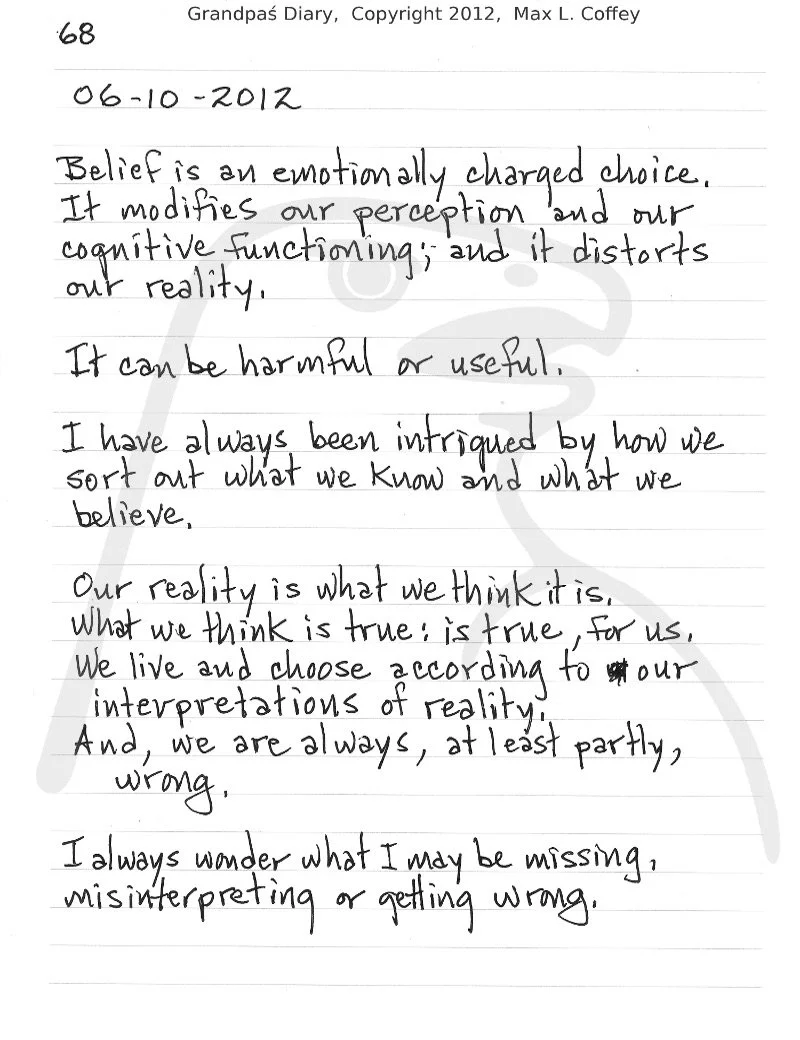 Grandpaś Diary, Copyright 2012, Max L. Coffey
68
06-10-2012
Belief is an emotionally charged choice.
It modifies our perception and our
cognitive functioning; and it distorts
our reality.
It can be harmful or useful.
I have always been intrigued by how we
sort out what we know and what we
believe.
Our reality is what we think it is.
What we think is true: is true, for us.
We live and choose according to our
interpretations of reality.
And, we are always, at least partly,
wrong.
I always wonder what I may be missing,
misinterpreting or getting wrong.